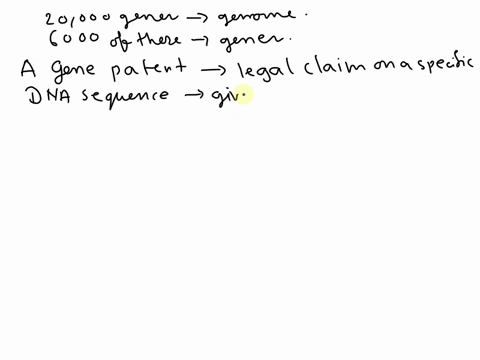 20,000 gener → genome.
6000 of there → gener.
A gene patent → legal claim on a specific
DNA sequence → giv